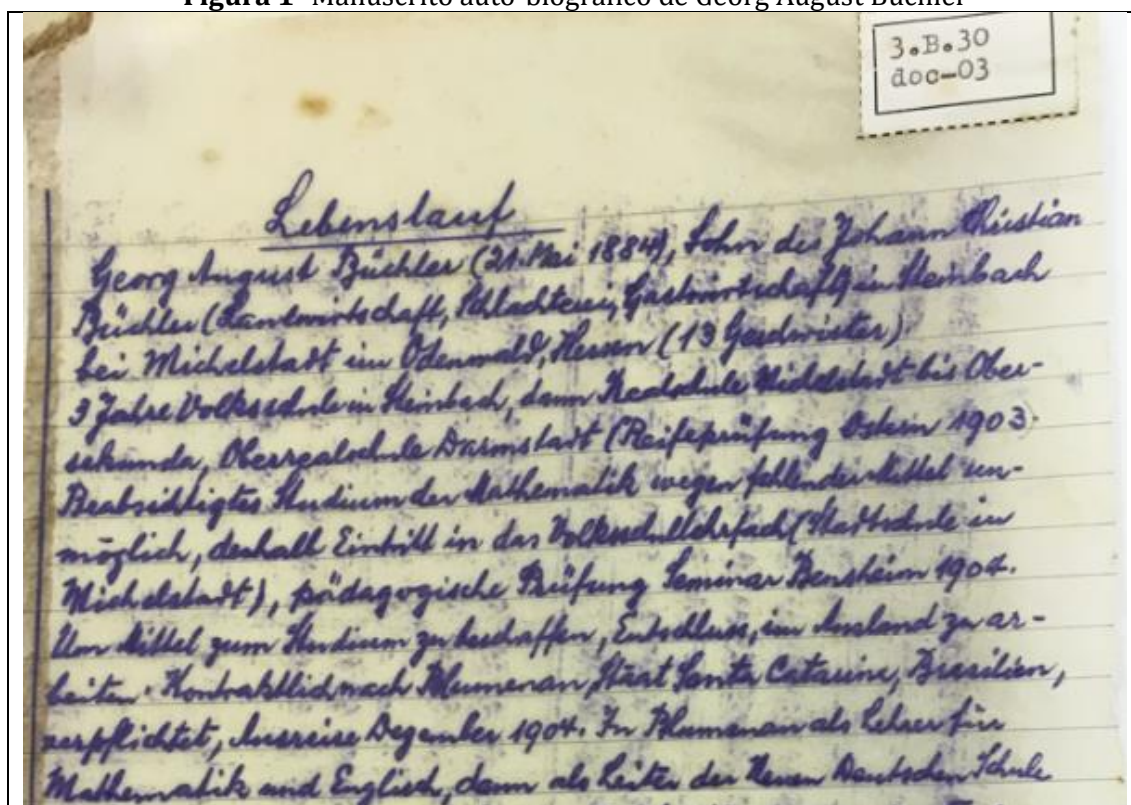 Figura 1- Manuscrito auto-biográfico de Georg August Büchler
3.B.30
doc-03
Lebenslauf
Georg August Büchler (21. Mai 1884), Sohn des Johann Christian
Büchler (Landwirtschaft, Schlachterei, Gastwirtschaft) in Steinbach
bei Michelstadt im Odenwald, Hessen (13 Geschwister)
3 Jahre Volksschule in Steinbach, dann Realschule Michelstadt bis Ober-
sekunda, Oberrealschule Darmstadt (Reifeprüfung Ostern 1903.
Beabsichtigtes Studium der Mathematik wegen fehlender Mittel un-
möglich, deshalb Eintritt in das Volksschullehrfach (Stadtschule in
Michelstadt), pädagogische Prüfung Seminar Bensheim 1904.
Um Mittel zum Studium zu beschaffen, Entschluss, im Ausland zu ar-
beiten. Kontraktlich nach Blumenau, Staat Santa Catarina, Brasilien,
verpflichtet, Ausreise Dezember 1904. In Blumenau als Lehrer für
Mathematik und Englisch, dann als Leiter der Neuen Deutschen Schule